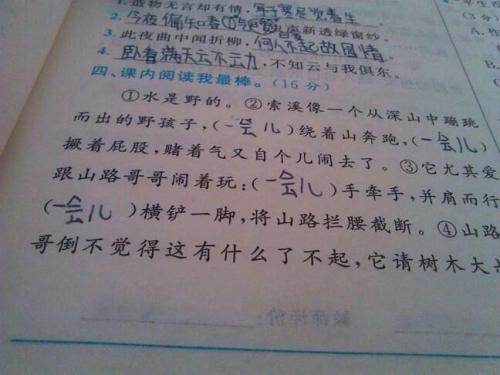 1.造物无言却有情,每于寒尽觉春生
2.今夜偏知春气暖,虫声新透绿窗纱。
3.此夜曲中闻折柳,何人不起故园情。
4.卧看满天云不动,不知云与我俱东。
四、课内阅读我最棒。(16分)
①水是野的。②索溪像一个从深山中蹦跳
而出的野孩子,(一会儿)绕着山奔跑,(一会儿)
撅着屁股,赌着气又自个儿闹去了。③它尤其爱
跟山路哥哥闹着玩:(一会儿)手牵手,并肩而行
(一会儿)横铲一脚,将山路拦腰截断。④山路
哥倒不觉得这有什么了不起,它请树木大